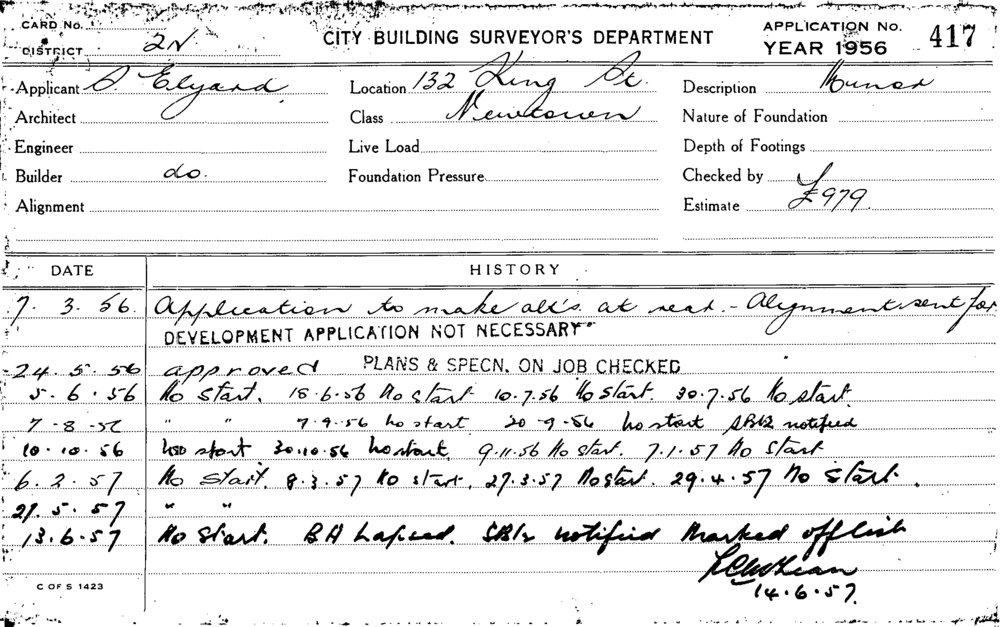 CARD No. CITY BUILDING SURVEYOR'S DEPARTMENT APPLICATION No. 417
DISTRICT 2N YEAR 1956
Applicant S. Elyard Location 132 King St. Description Minor
Architect Class Newtown Nature of Foundation
Engineer Live Load Depth of Footings
Builder do. Foundation Pressure Checked by
Alignment Estimate £979.
DATE HISTORY
7. 3. 56. Application to make alt's. at rear. - Alignment sent for.
DEVELOPMENT APPLICATION NOT NECESSARY
24. 5. 56 approved PLANS & SPECN. ON JOB CHECKED
5. 6. 56 No start. 18.6.56 No start 10.7.56 No start. 30.7.56 No start.
7-8-56 " " 7.9.56 no start 20-9-56 no start notified
10.10.56 no start 30.10.56 no start. 9.11.56 No start. 7.1.57 No start
6.2.57 No start. 8.3.57 No start. 27.3.57 No start. 29.4.57 No start.
27.5.57 " "
13.6.57 No start. BA Lapsed. notified Marked off list
14.6.57.
C OF S 1423